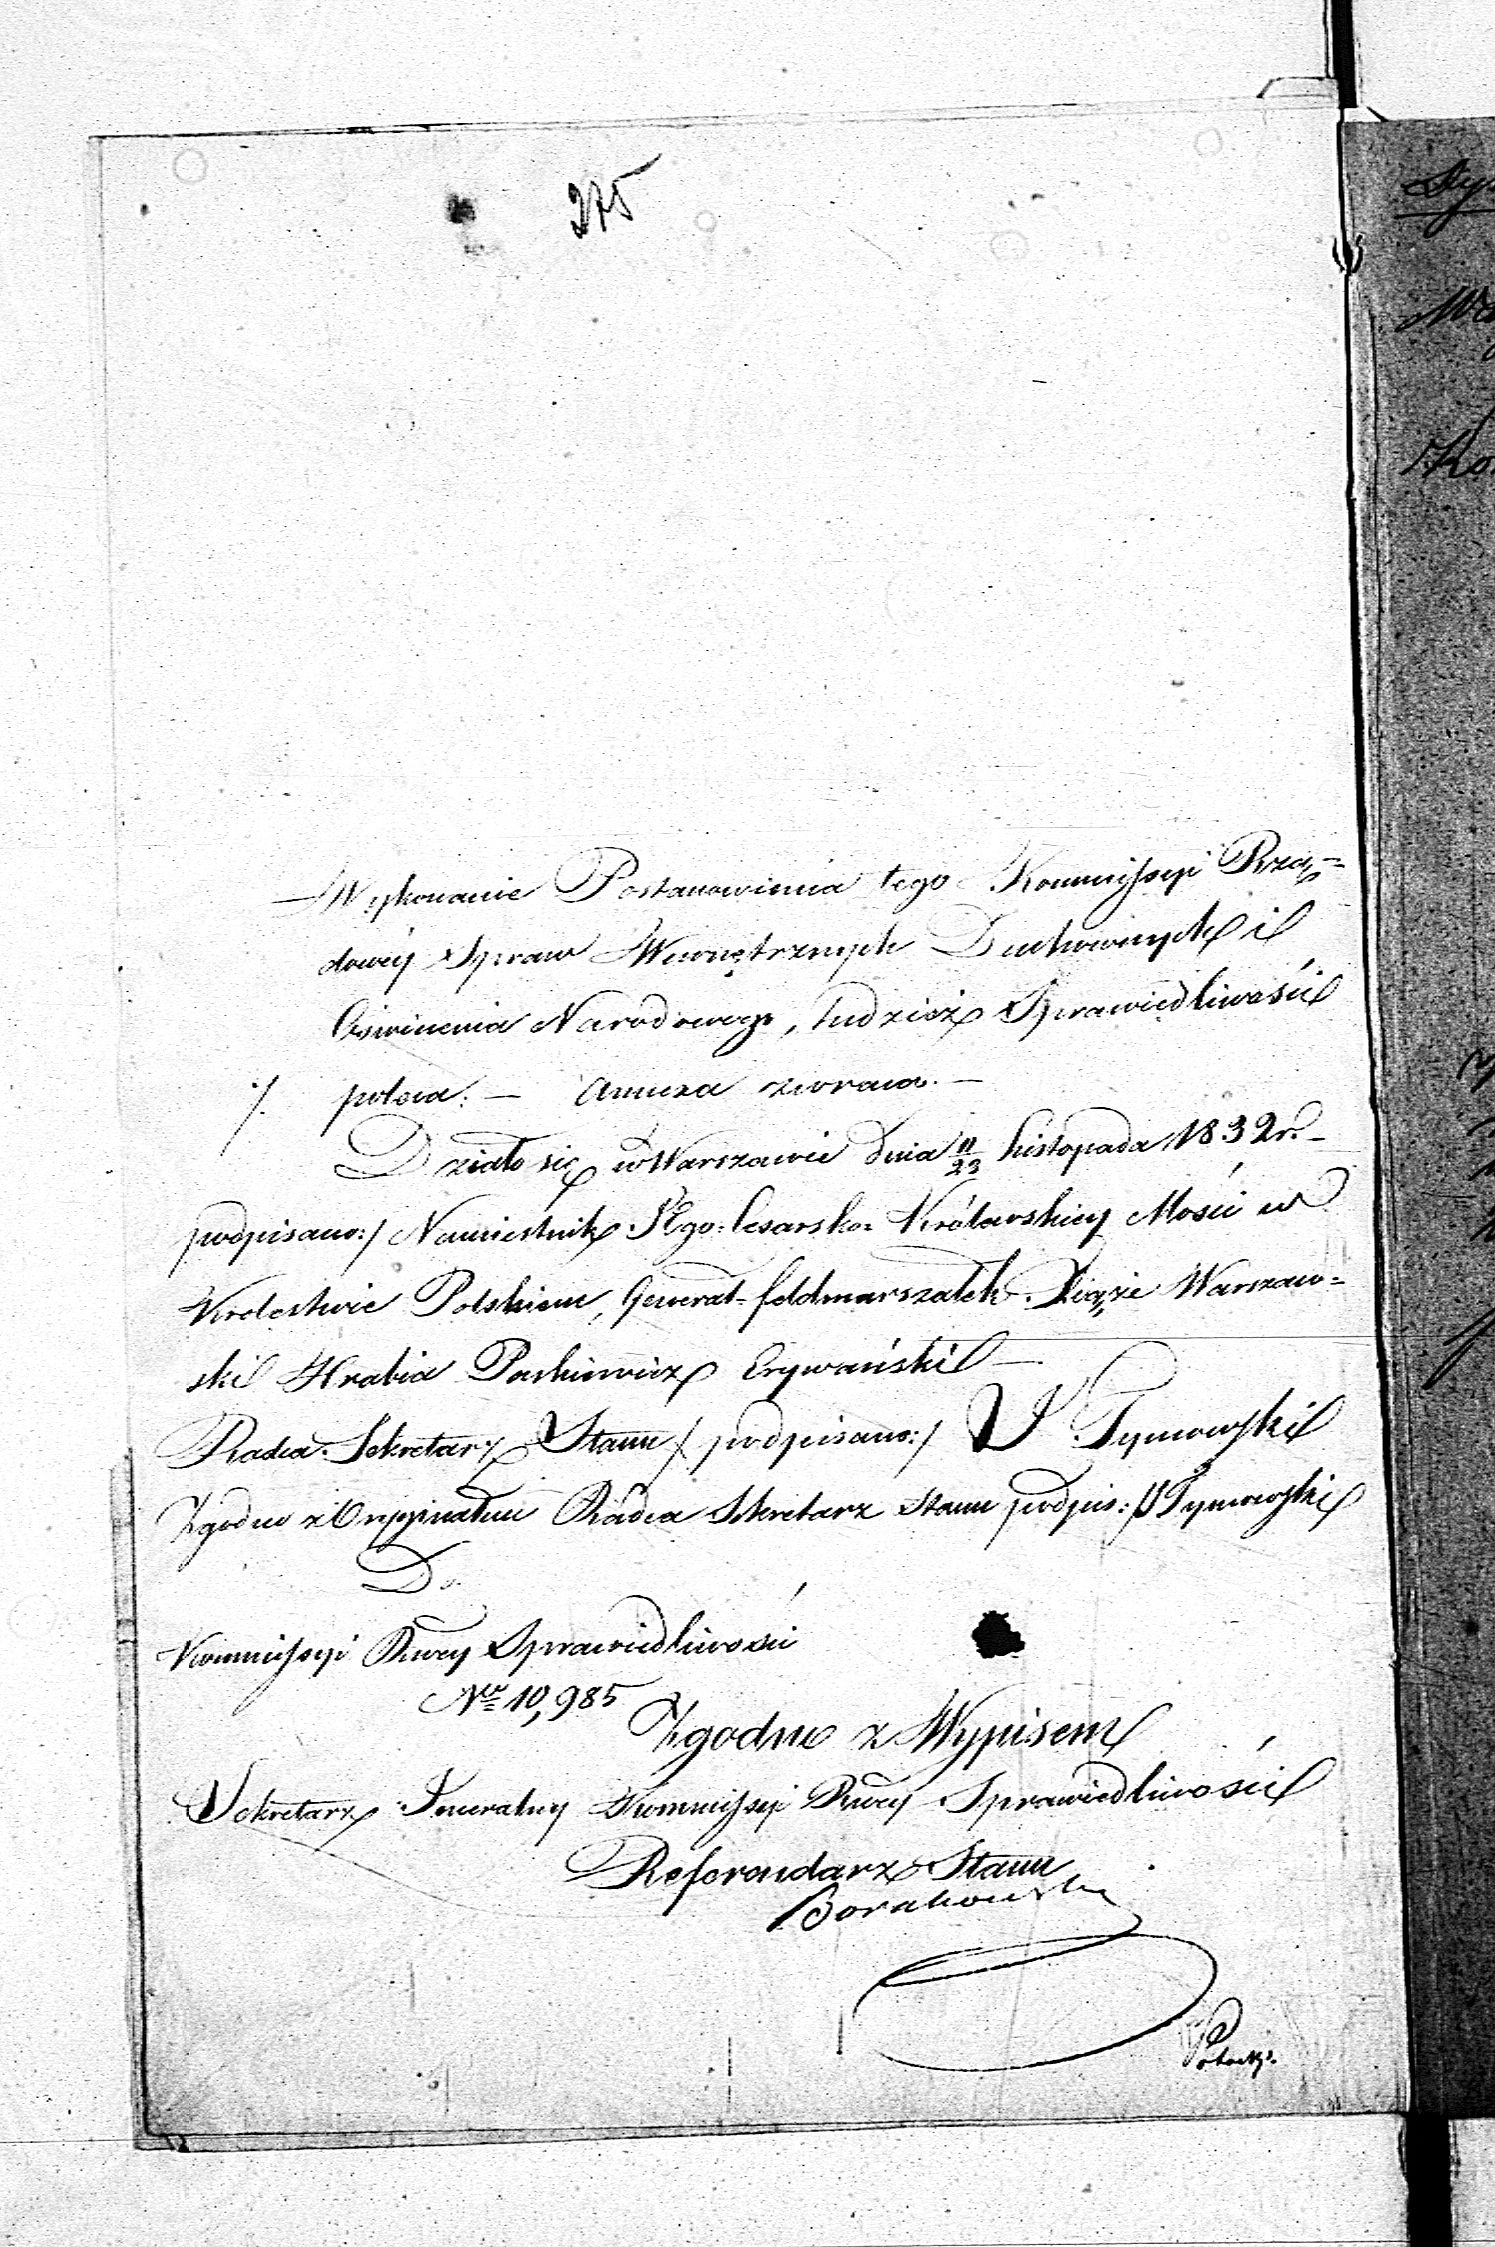 275
Wykonanie Postanowienia tego Kommissyi Rzą=
dowéy Spraw Wewnętrznych Duchownych i
Oświecenia Narodowego, tudzież Sprawiedliwości
/. poleca. — zwraca. —
Działo się w Warszawie dnia 11/23 Listopada 1832 r. —
podpisano:/ Namiestnik Jego Cesarsko Królewskiey Mości w
Krolestwie Polskiem, Generał-feldmarszałek Xiąże Warszaw=
ski Hrabia Paskiewicz Erywański —
Radca Sekretarz Stanu / podpisano:/ J Tymowski
Zgodno z Oryginałem Radca Sekretarz Stanu podpis:/ J Tymowski
Do
Kommissyi Rwey Sprawiedliwości
Nro 10,985
Zgodno z Wypisem
Sekretarz Jeneralny Kommissyi Rwey Sprawiedliwości
Referendarz Stanu
Borakowski
Dy
Ko